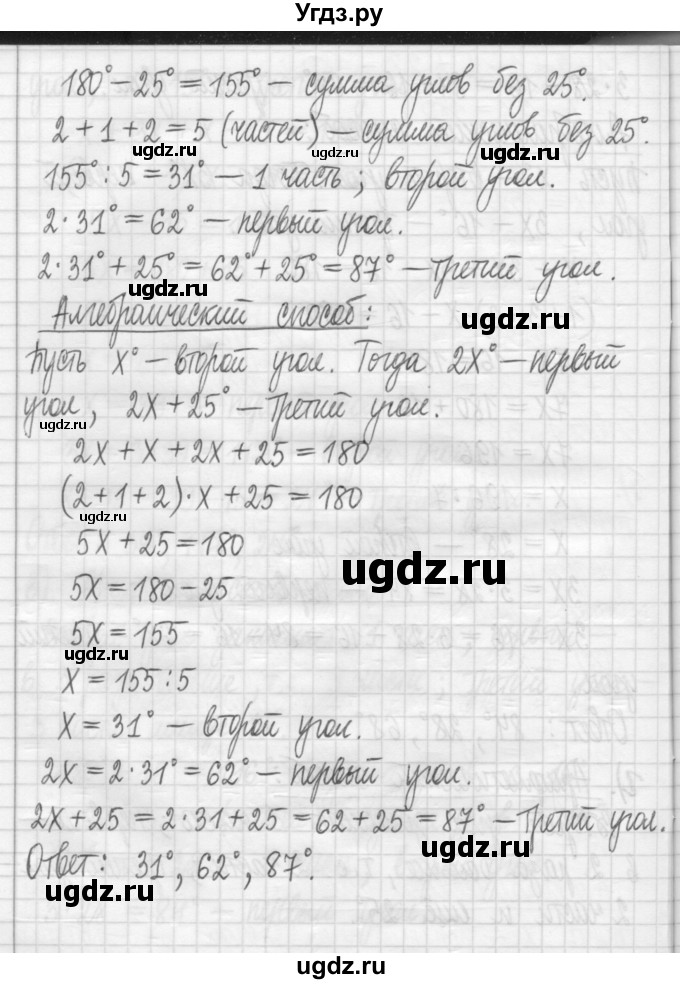 Угдз.ру
180° − 25° = 155° — сумма углов без 25°.
2 + 1 + 2 = 5 (частей) — сумма углов без 25°.
ugdz.ru ugdz.ru ugdz.ru
155° : 5 = 31° — 1 часть ; второй угол.
2 · 31° = 62° — первый угол.
2 · 31° + 25° = 62° + 25° = 87° — третий угол.
ugdz.ru
Алгебраический способ:
ugdz.ru
Пусть x° — второй угол. Тогда 2x° — первый
угол, 2x + 25° — третий угол.
ugdz.ru
2x + x + 2x + 25 = 180
(2 + 1 + 2) · x + 25 = 180
ugdz.ru
5x + 25 = 180
ugdz.ru
5x = 180 − 25
5x = 155
ugdz.ru
x = 155 : 5
x = 31° — второй угол.
2x = 2 · 31° = 62° — первый угол.
2x + 25 = 2 · 31 + 25 = 62 + 25 = 87° — третий угол.
ugdz.ru
Ответ: 31°, 62°, 87°.
ugdz.ru
ugdz.ru